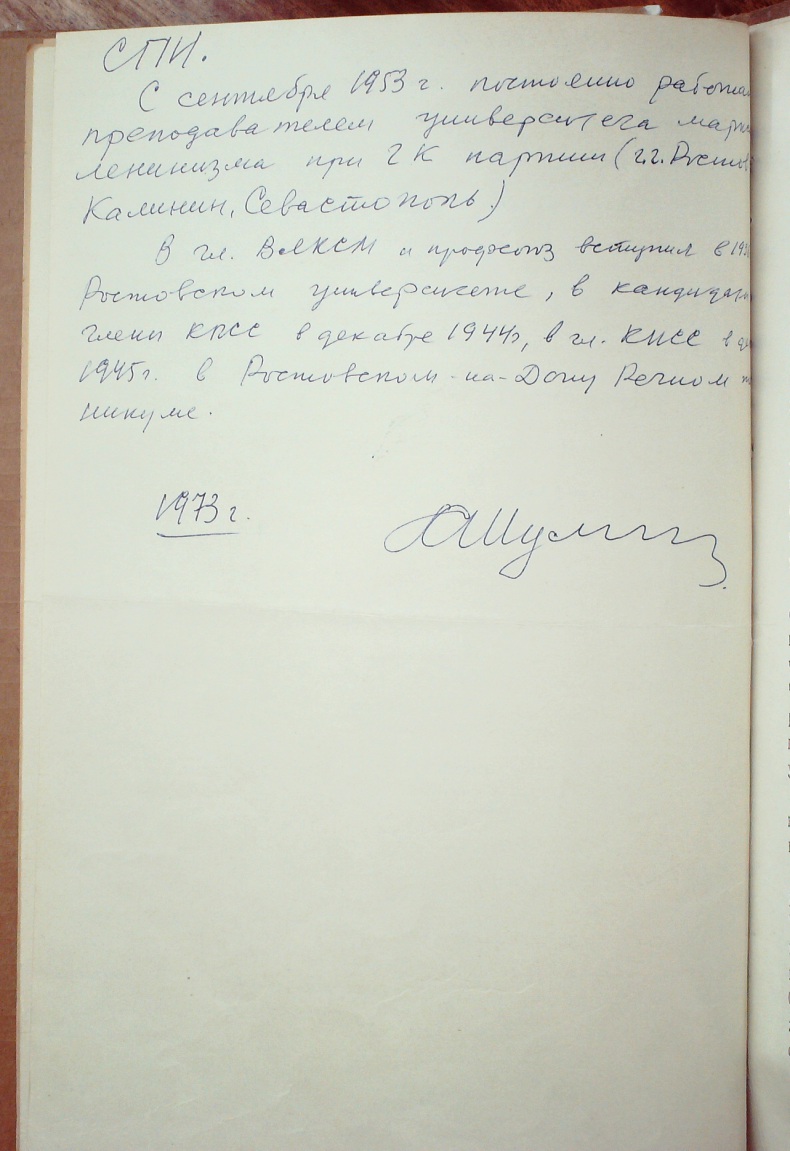 СПИ.
С сентября 1953 г. постоянно работа
преподавателем университета марк
ленинизма при ГК партии (г.г. Ростов
Калинин, Севастополь)
В чл. ВЛКСМ и профсоюз вступил в 193
Ростовском университете, в кандидат
члены КПСС в декабре 1944г, в чл. КПСС в де
1945г. в Ростовском-на-Дону Речном т
никуме.
1973 г.